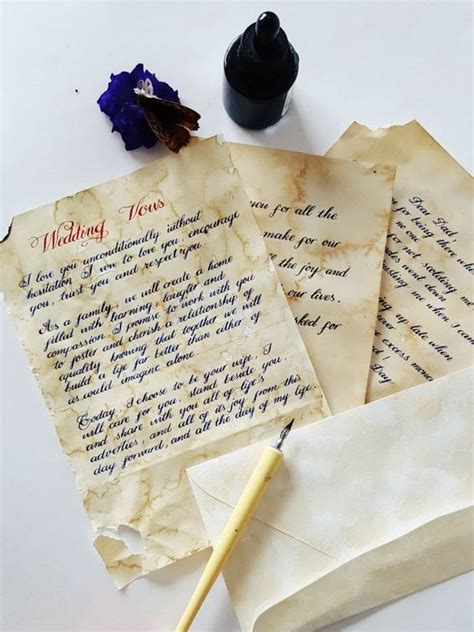 Wedding Vous
I love you unconditionally without
hesitation. I vow to love you, encourage
you, trust you and respect you.
As a family, we will create a home
filled with learning, laughter and
compassion. I promise to work with you
to foster and cherish a relationship of
equality knowing that together we will
build a life far better than either of
us could imagine alone.
Today, I choose to be your wife. I
will care for you, stand beside you,
and share with you all of life's
adverties, and all of its joy from this
day forward, and all the day of my life.
you for all the
make for our
all the joy and
our lives.
asked for
Dear Dad!
for being there
no one
not scolding me
les went down
me
up late when
r excess money